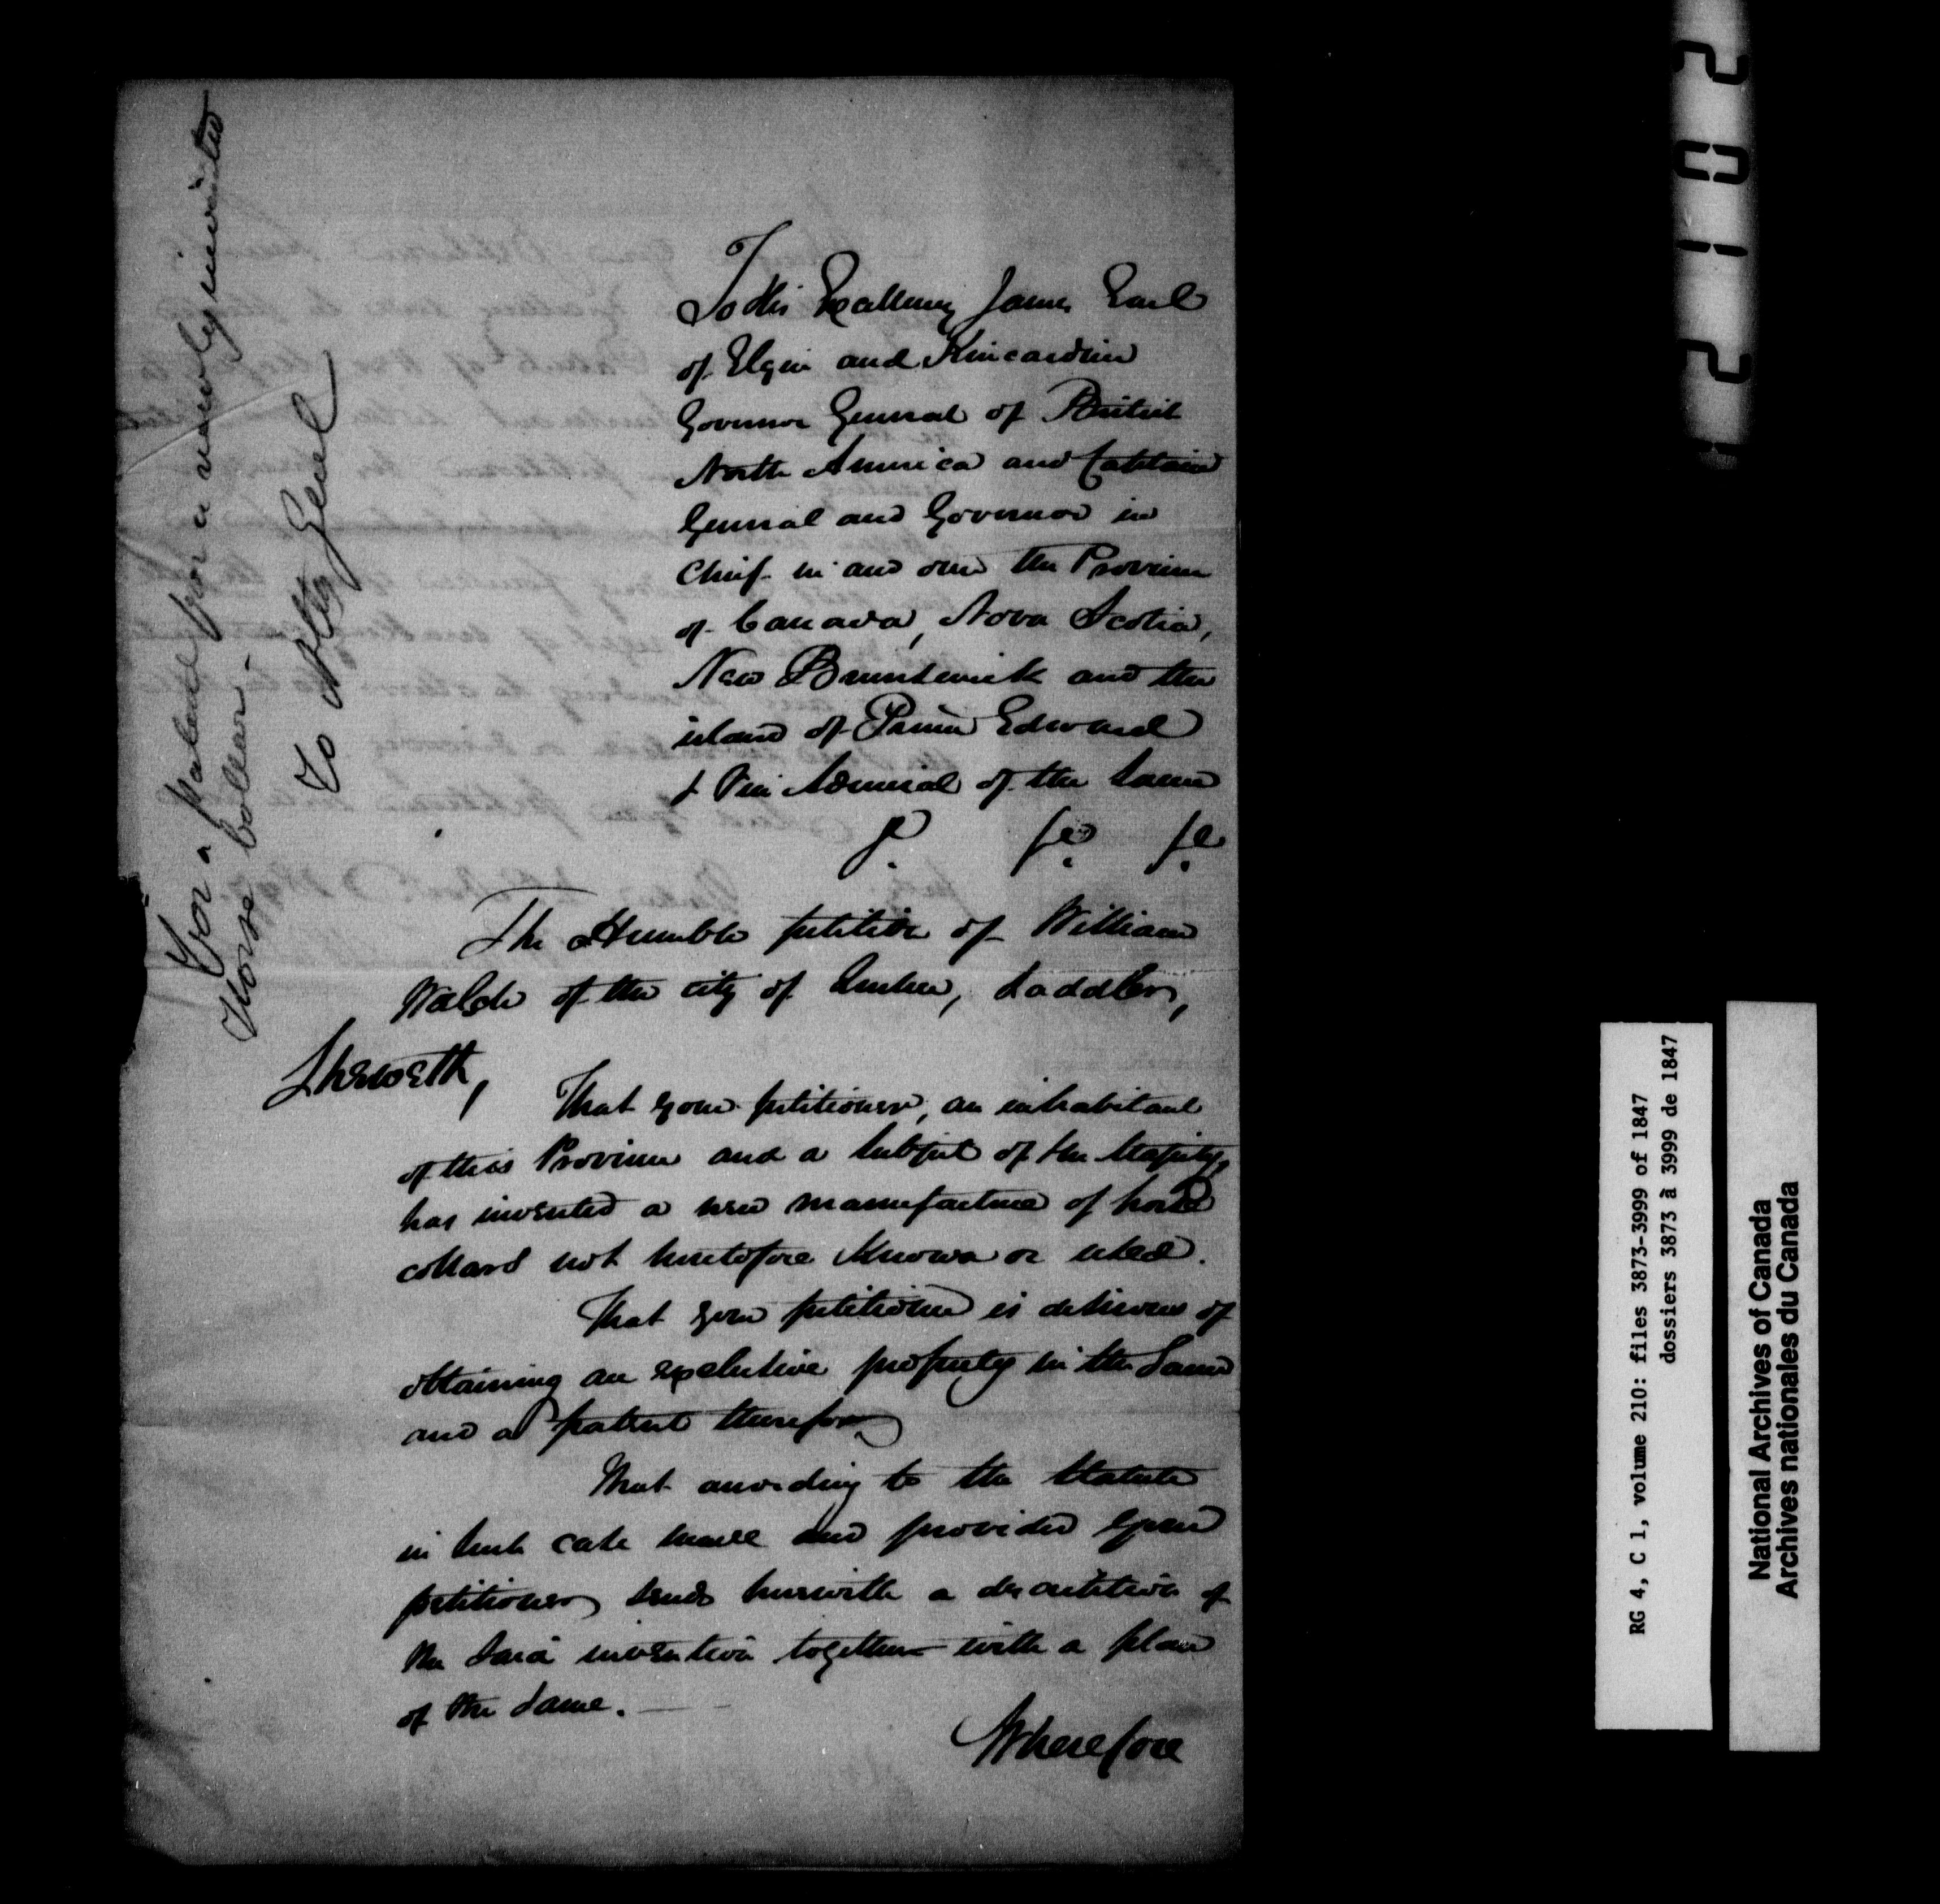 For a patent for a newly invented
Horse Collar -
To Atty Genl
To His Excellency James Earl
of Elgin and Kincardine
Governor General of British
North America and Captain
General and Governor in
Chief in and over the Province
of Canada, Nova Scotia,
New Brunswick and the
island of Prince Edward
& Vice Admiral of the same
&c. &c. &c.
The Humble petition of William
Walsh of the city of Quebec, Saddler,
Sheweth,
That your petitioner, an inhabitant
of this Province and a subject of Her Majesty,
has invented a new manufacture of horse
collars not heretofore known or used.
That your petitioner is desirous of
obtaining an exclusive property in the same
and a patent therefor
That according to the Statute
in such case made and provided your
petitioner sends herewith a description of
the said invention together with a plan
of the same.
Wherefore
2012
RG 4, C 1, volume 210: files 3873-3999 of 1847
dossiers 3873 à 3999 de 1847
National Archives of Canada
Archives nationales du Canada